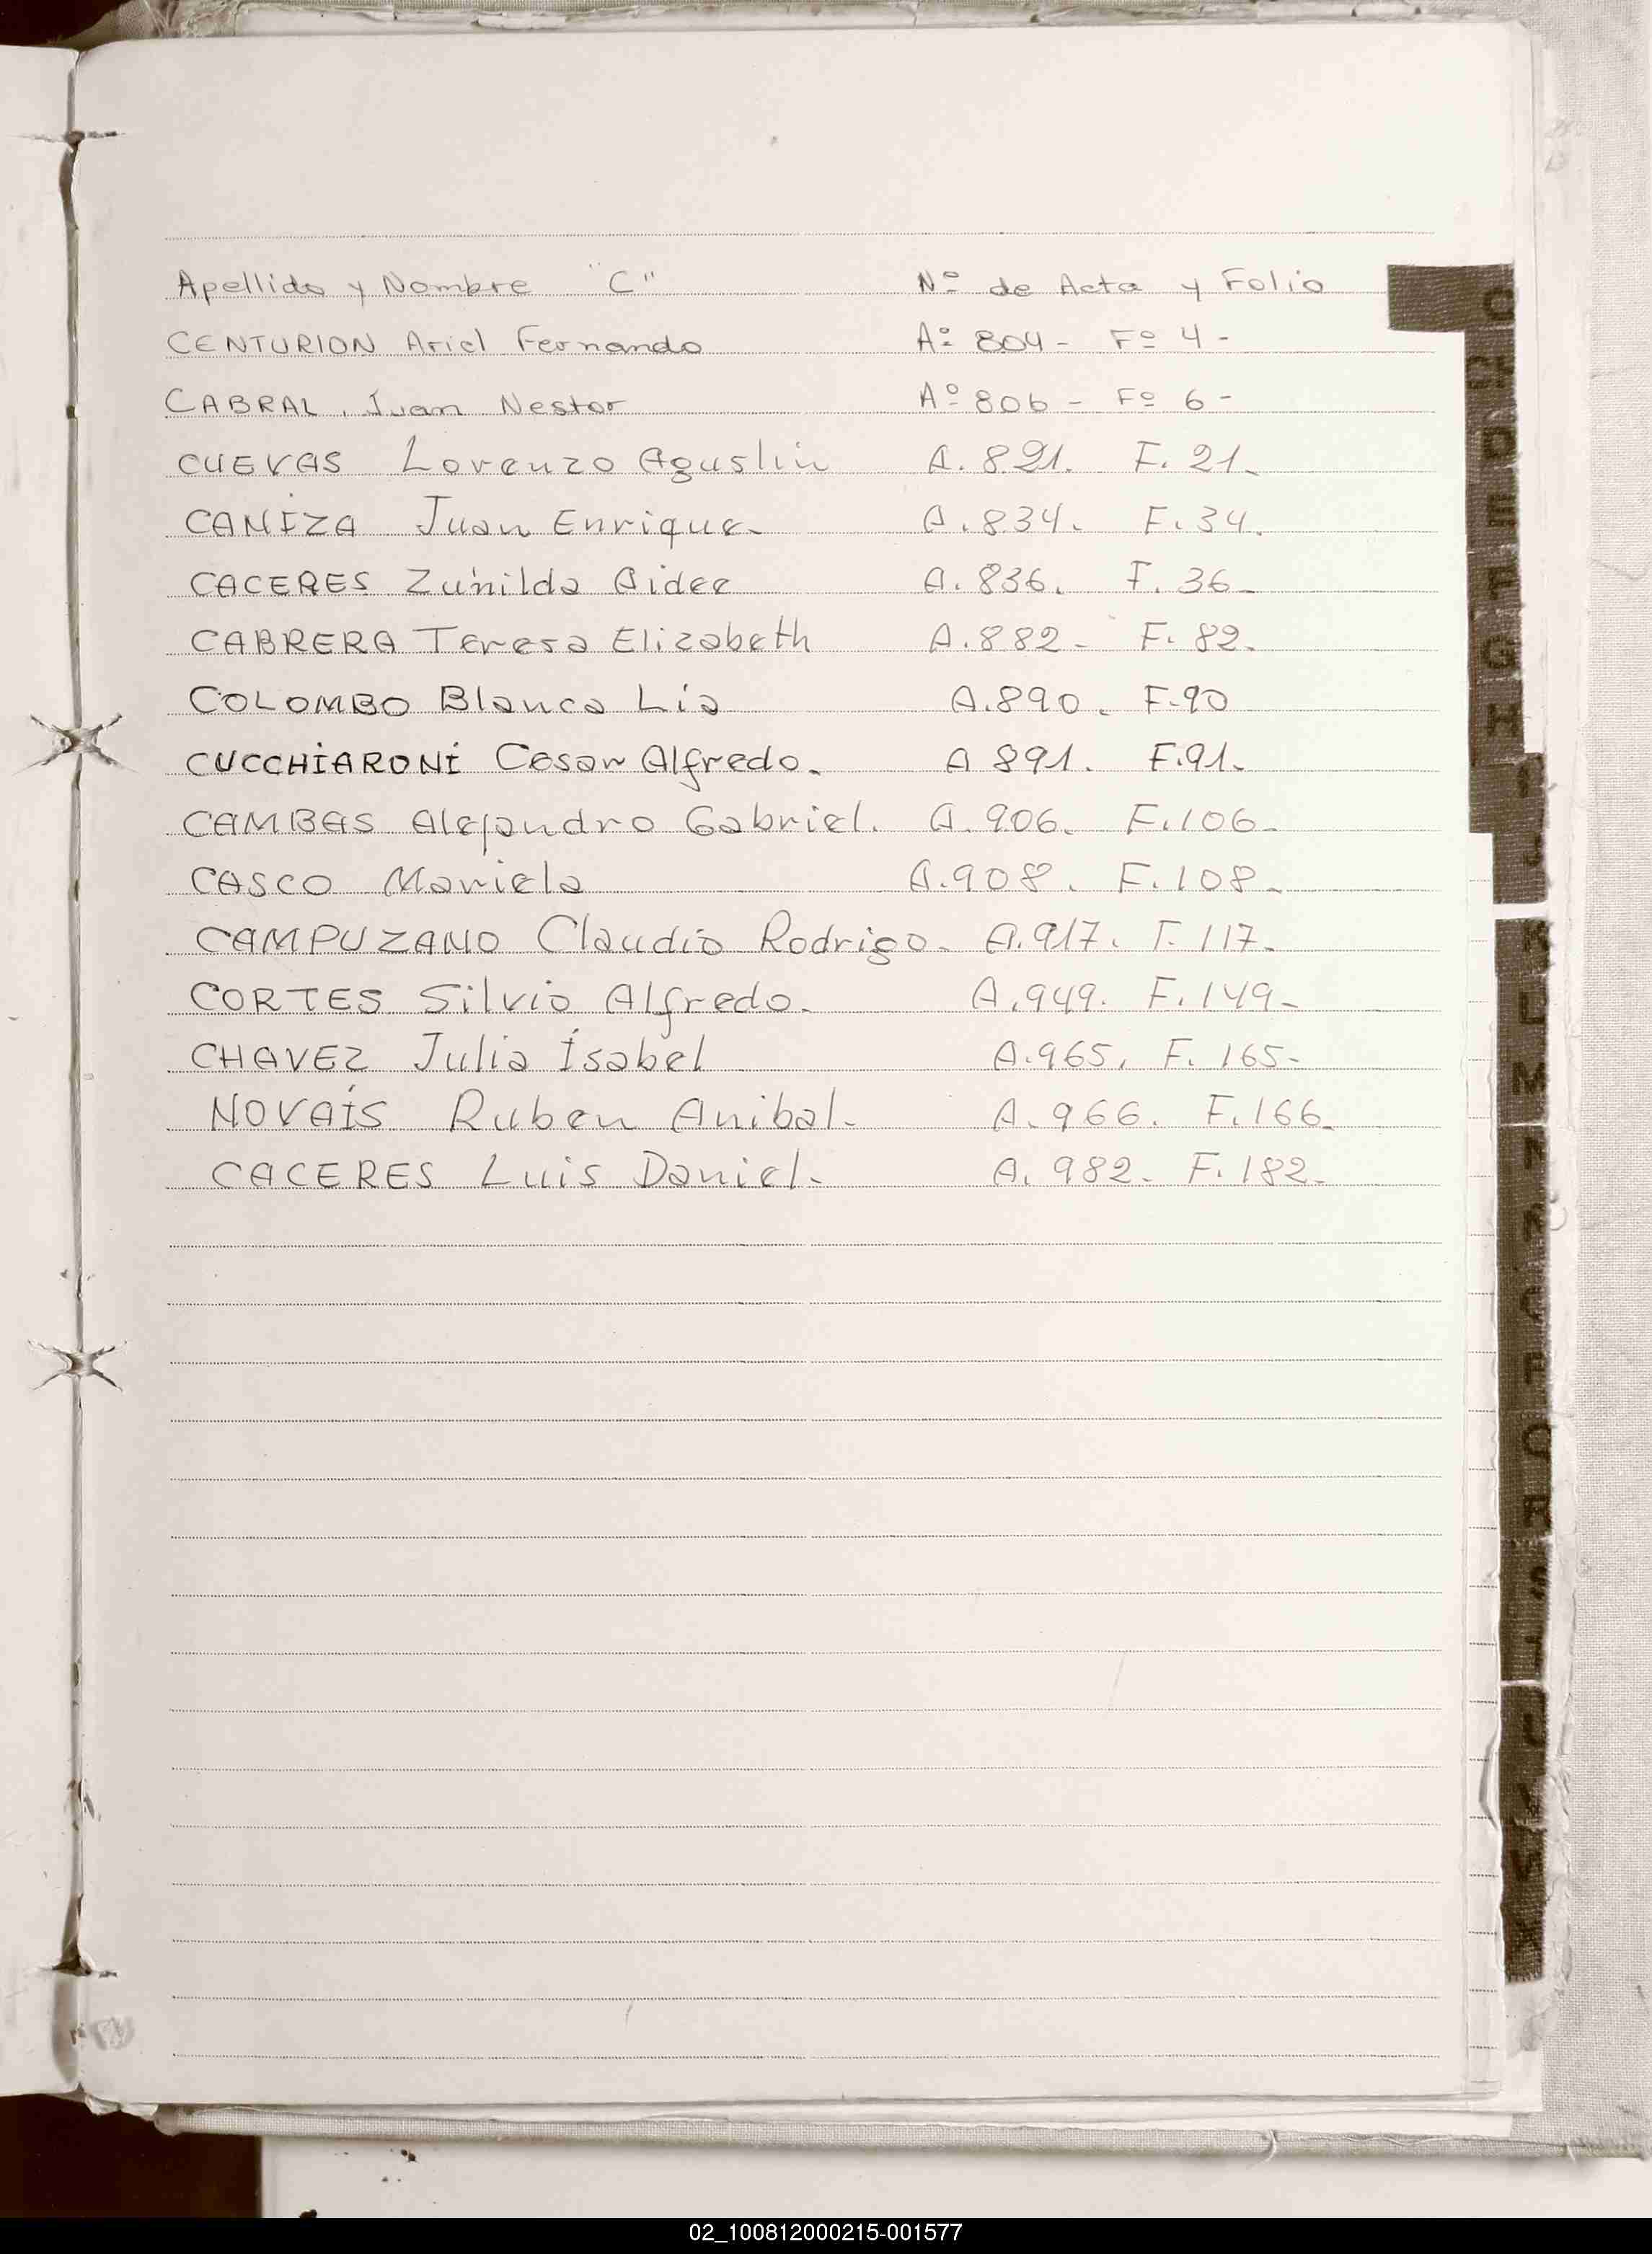 Apellido y Nombre "C" Nº de Acta y Folio
CENTURION Ariel Fernando Aº 804 - Fº 4 -
CABRAL, Juan Nestor Aº 806 - Fº 6 -
CUEVAS Lorenzo Agustin A. 821. F. 21.
CANIZA Juan Enrique. A. 834. F. 34.
CACERES Zunilda Aidee A. 836. F. 36.
CABRERA Teresa Elizabeth A. 882 - F. 82.
COLOMBO Blanca Lia A. 890. F. 90
CUCCHIARONI Cesar Alfredo. A 891. F. 91.
CAMBAS Alejandro Gabriel. A. 906. F. 106.
CASCO Mariela A. 908. F. 108.
CAMPUZANO Claudio Rodrigo. A. 917. F. 117.
CORTES Silvio Alfredo. A. 949. F. 149.
CHAVEZ Julia Isabel A. 965. F. 165.
NOVAIS Ruben Anibal. A. 966. F. 166.
CACERES Luis Daniel. A. 982. F. 182.
C
D
E
F
G
H
L
M
02_100812000215-001577